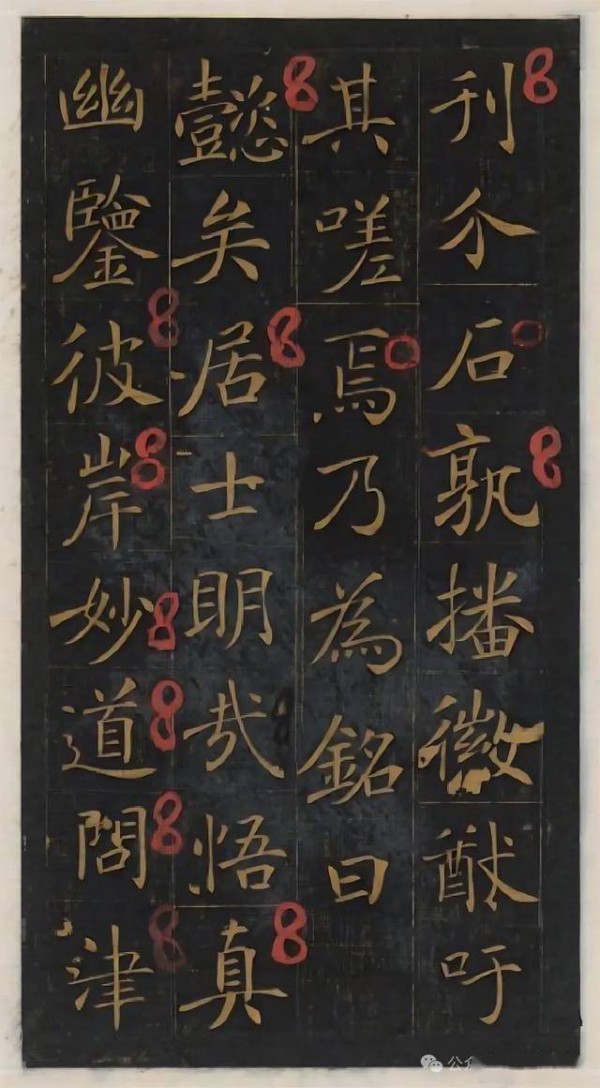 刊介石孰播徽猷吁
其嗟焉乃為銘曰
懿矣居士明哉悟真
幽鑒彼岸妙道問津
公